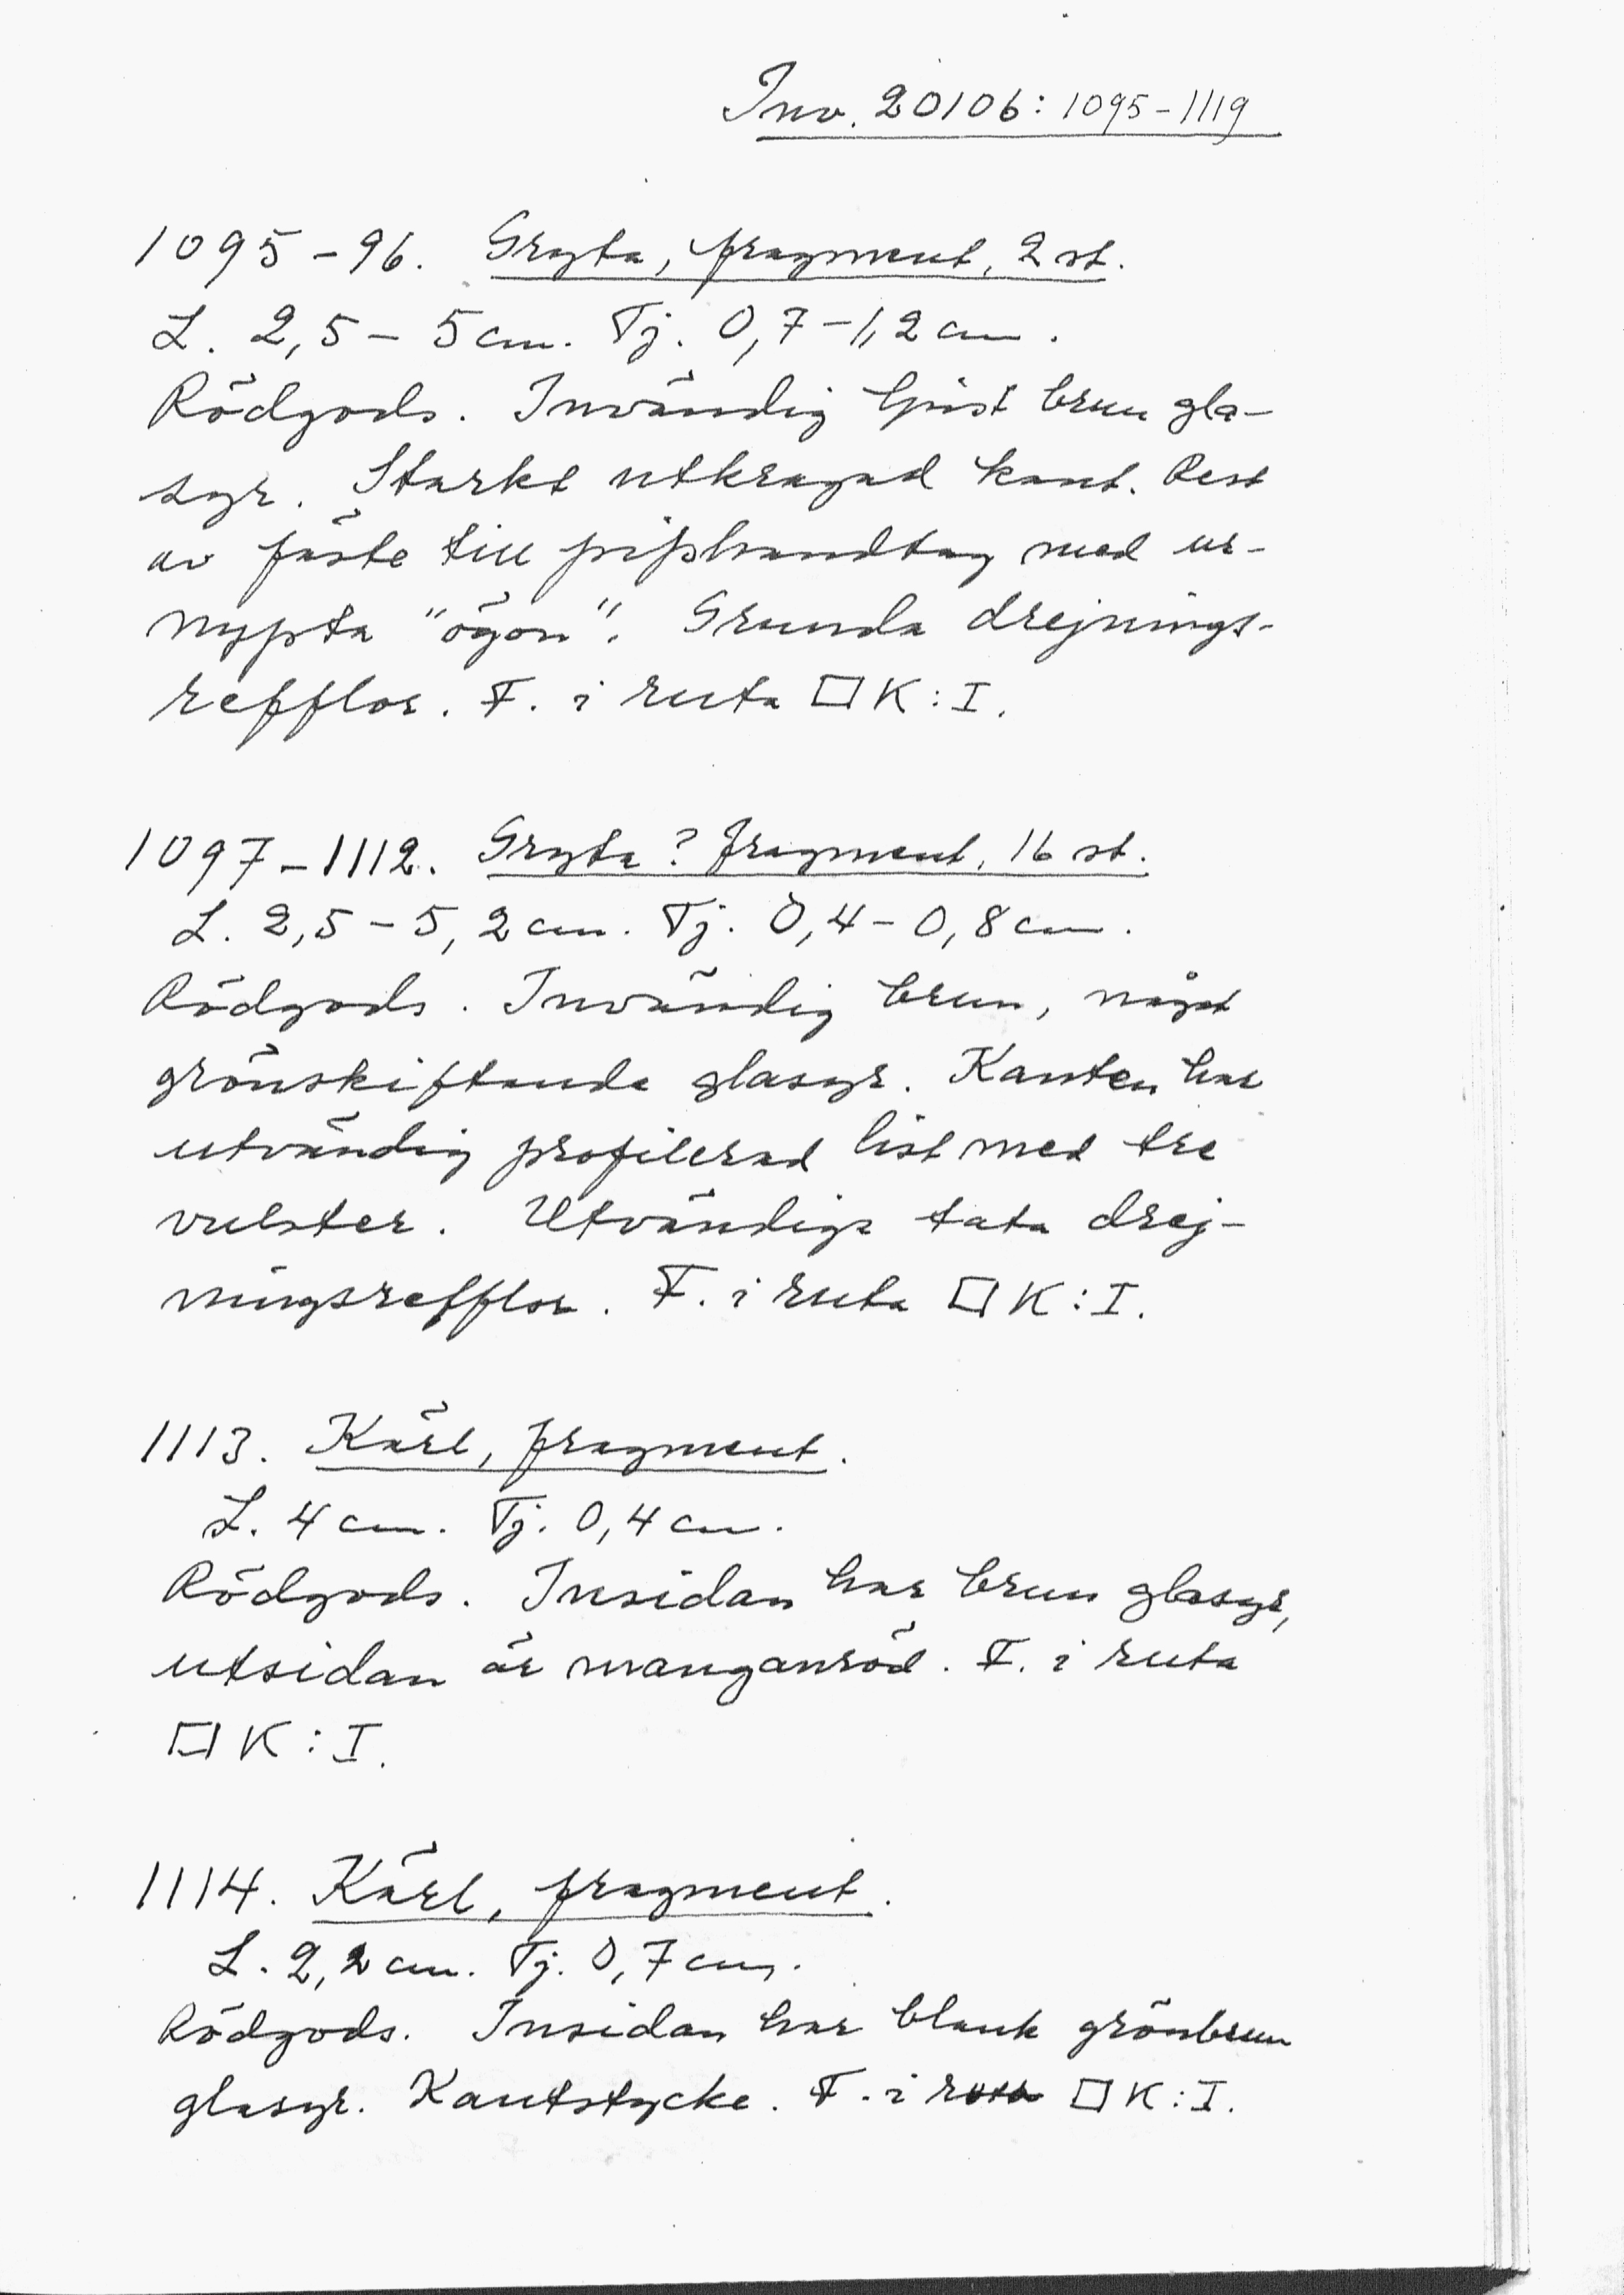 Inv. 20106: 1095-1119
1095-96. Gryta, fragment, 2 st.
L. 2,5 - 5 cm. Tj. 0,7-1,2 cm.
Rödgods. Invändig ljust brun gla-
syr. Starkt utkragad kant. Rest
av fäste till piphandtag med ur-
nypta "ögon". Grunda drejnings-
refflor. F. i ruta □ K:I.
1097-1112. Gryta? fragment, 16 st.
L. 2,5-5,2 cm. Tj. 0,4-0,8 cm.
Rödgods. Invändig brun, något
grönskiftande glasyr. Kanten har
utvändig profilerad list med tre
vulster. Utvändiga täta drej-
ningsrefflor. F. i ruta □ K:I.
1113. Kärl, fragment.
L. 4 cm. Tj. 0,4 cm.
Rödgods. Insidan har brun glasyr,
utsidan är manganröd. F. i ruta
□ K:I.
1114. Kärl, fragment.
L. 2,2 cm. Tj. 0,7 cm.
Rödgods. Insidan har blank grönbrun
glasyr. Kantstycke. F. i ruta □ K:I.